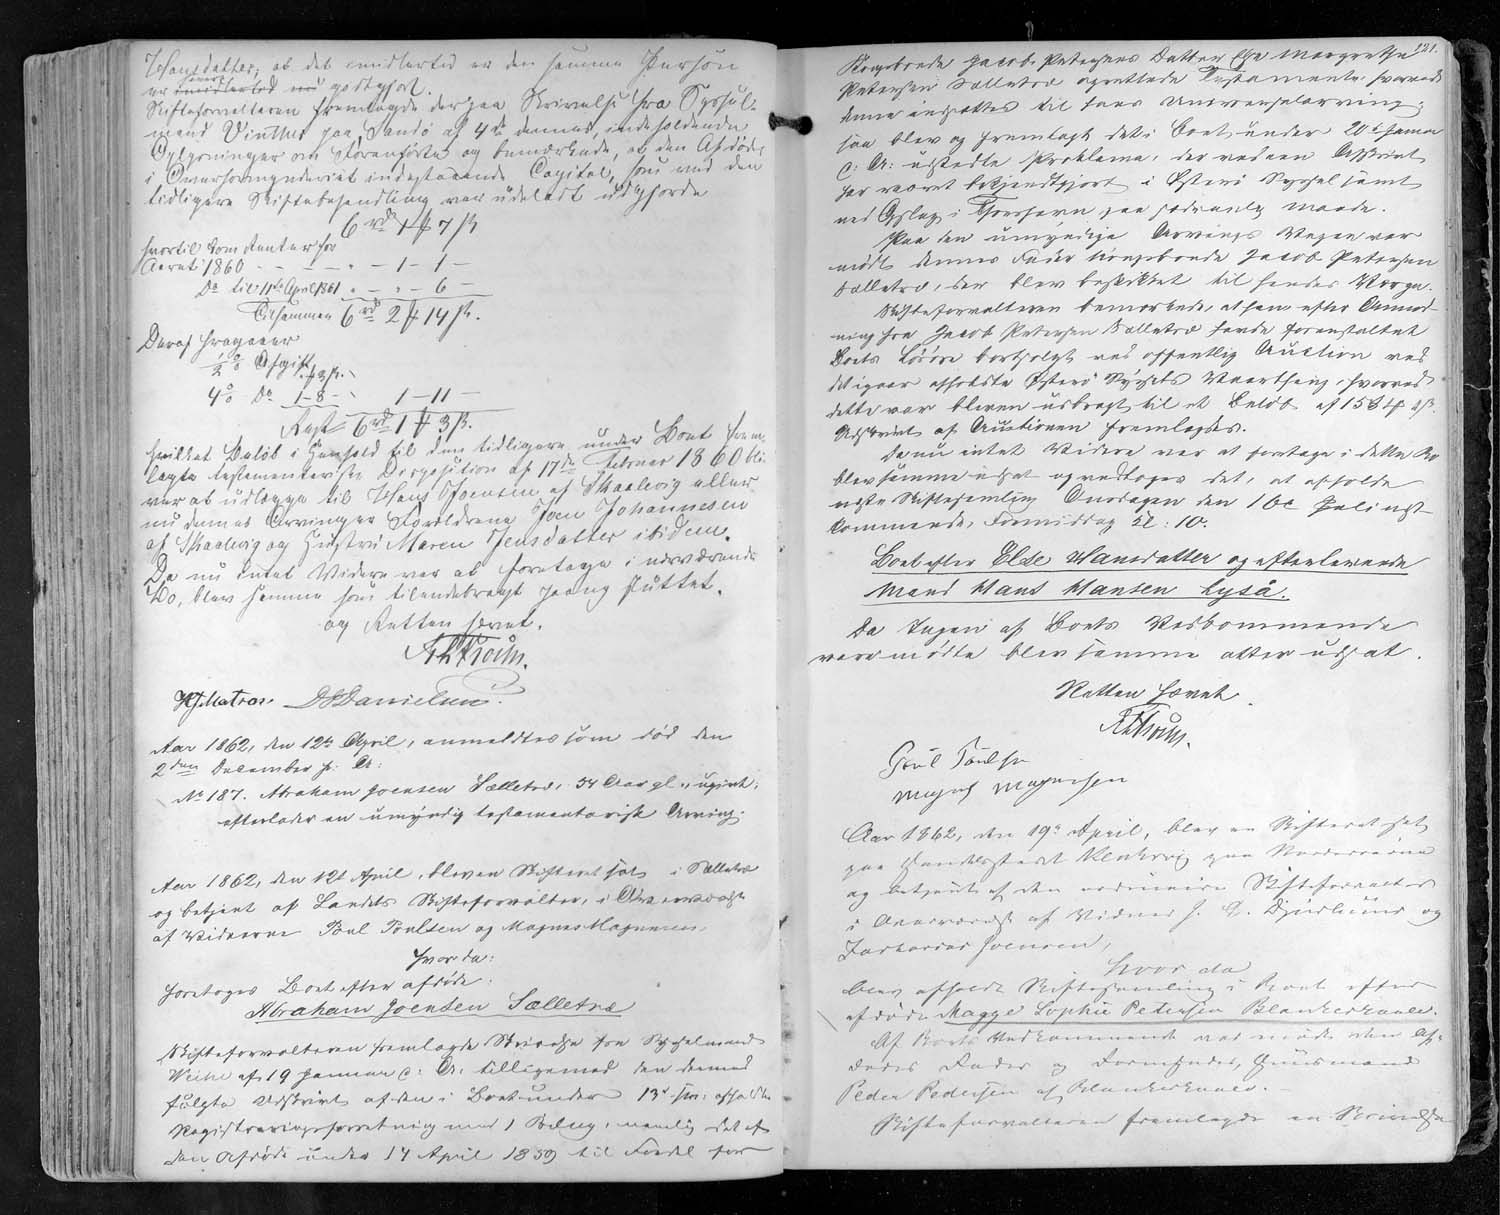 Hansdatter, at det imidlertid er den samme Person
er godtgjort.
Skifteforvalteren fremlagde derpaa Skrivelse fra Syssel-
mand Vinther paa Sandø af 4de dennes, indeholdende
Oplysninger om Forenførte og bemærkede, at den Afdødes
i Overformynderiet indestaaende Capital, som ved den
tidligere Skiftebehandling var udeladt udgjorde
6 rd 1 # 7 ß
hvortil kom Renter for
Aaret 1860 - - - - - 1 - 1 -
Do til 11te April 1861 " - " - 6 -
Tilsammen 6 rd 2 # 14 ß.
Deraf fragaaer
1/2 % Afgift # 3 ß.
4 % Do 1 - 8 - 1 - 11 -
Rest 6 rd 1 # 3 ß.
hvilket Beløb i Henhold til den tidligere under Boet frem-
lagte testamentariske Disposition af 17de Februar 1860 bli-
ver at udlægge til Hans Joensen af Skaalevig eller
nu dennes Arvinger Forældrene Joen Johannesen
af Skaalevig og Hustru Maren Jensdatter ibidem.
Da nu intet Videre var at foretage i nærværende
Bo, blev samme som tilendebragt paany sluttet.
og Retten hævet.
HJMatras. DDanielsen.
Aar 1862, den 12te April, anmeldtes som død den
2den December p: A:
No 187. Abraham Joensen Sælletræ, 54 Aar gl., ugivt,
efterlader en umyndig testamentarisk Arving.
Aar 1862, den 12t April, blev en Skifteret sat i Sælletræ
og betjent af Landets Skifteforvalter, i Overværelse
af Vidnerne Poul Poulsen og Magnus Magnusen,
hvor da:
foretoges Boet efter afdøde:
Abraham Joensen Sælletræ
Skifteforvalteren fremlagde Skrivelse fra Sysselmand
Weihe af 19 Januar c: A: tilligemed den dermed
fulgte Udskrivt af den i Boet under 13d s. m: afholdte
Registreringsforretning med 1 Bilag, nemlig det af
den Afdøde under 14 April 1859 til Fordel for
121.
Kongsbonde Jacob Petersens Datter Else Margrethe
Petersen Sælletræ oprettede Testamente, hvorved
denne indsættes til hans Universalarving;
saa blev og fremlagt det i Boet under 20d Januar
c: A: udstedte Proklama, der ved en Afskrivt
har været bekjendtgjort i Østerø Syssel samt
ved Opslag i Thorshavn paa sædvanlig Maade.
Paa den umyndige Arvings Vegne var
mødt dennes Fader Kongsbonde Jacob Petersen
Sælletræ, der blev beskikket til hendes Værge.
Skifteforvalteren bemærkede, at han efter Anmod-
ning fra Jacob Petersen Sælletræ havde foranstaltet
Boets Løsøre bortsolgt ved offentlig Auction ved
det igaar afholdte Østerø Syssels Vaarthing, hvorved
dette var bleven udbragt til et Beløb af 158 # 4 ß.
Udskrivt af Auctionen fremlagdes.
Da nu intet Videre var at foretage i dette Bo
blev samme udsat og vedtoges det, at afholde
næste Skiftesamling Onsdagen den 16e Juli næst-
kommende, Formiddag Kl: 10.
Boet efter Elde Hansdatter og efterlevende
Mand Hans Hansen Lyså.
Da Ingen af Boets Vedkommende
vare mødte blev samme atter udsat.
Retten hævet.
Poul Poulsen
Magnus Magnusen
Aar 1862, den 19de April, blev en Skifteret sat
paa Handelsstedet Klaksvig paa Norderøerne
og betjent af den ordinaire Skifteforvalter
i Overværelse af Vidner J. Q. Djurhuus og
Zacharias Joensen,
hvor da
blev afholdt Skiftesamling i Boet efter
afdøde Magge Sophie Petersen Blankeskaale.
Af Boets Vedkommende var mødt den Af-
dødes Fader og Formynder, Huusmand
Peder Pedersen af Blankeskaale.
Skifteforvalteren fremlagde en Skrivelse